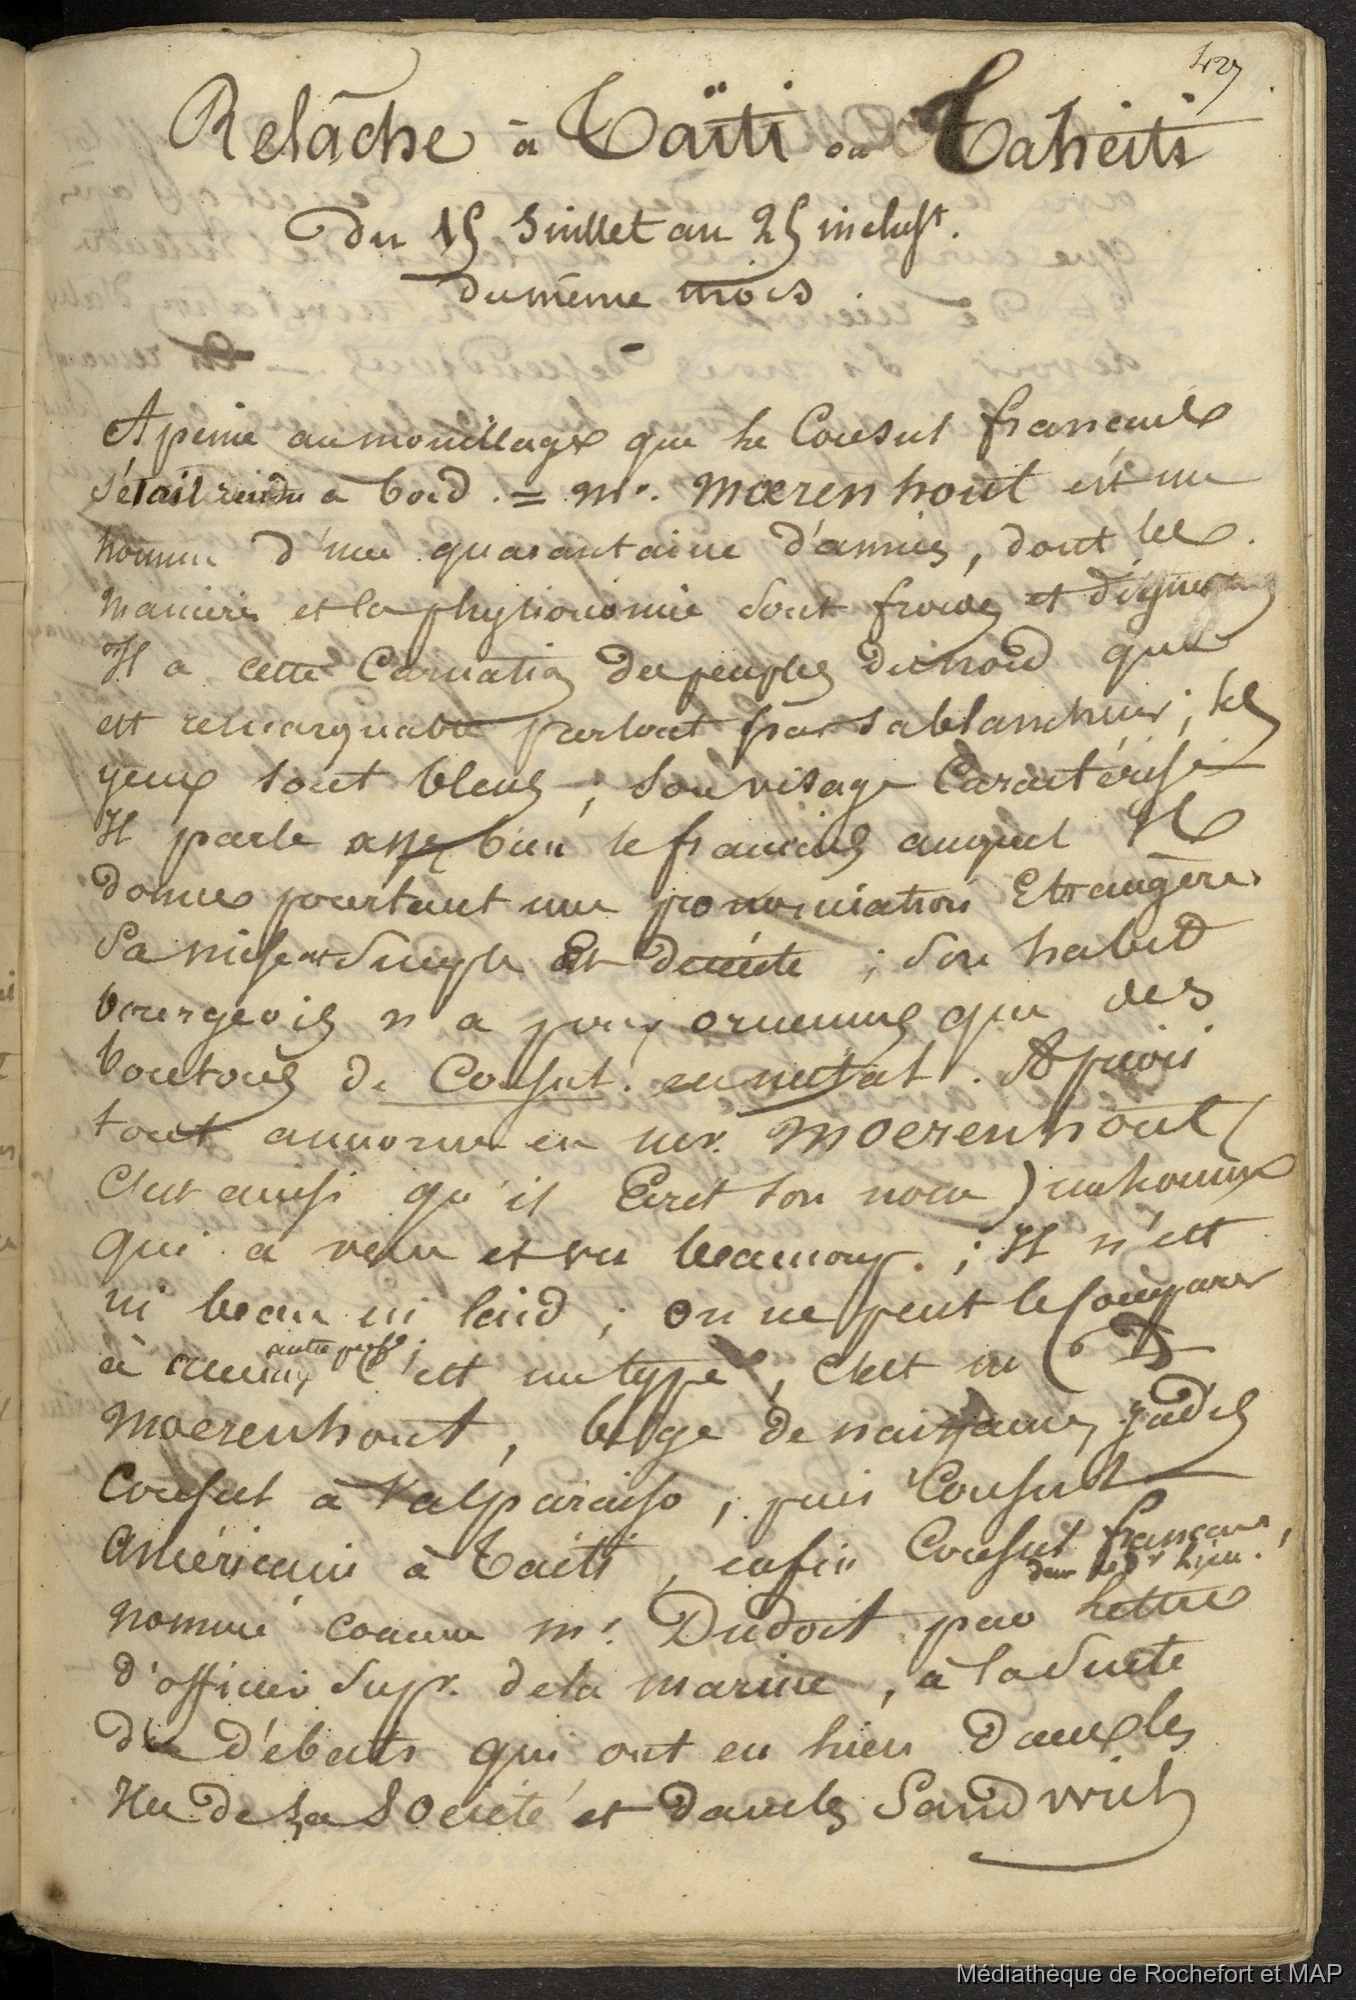 427
Relâche à Taïti ou Taheiti
Du 15 Juillet au 25 inclust.
du même mois
A peine au mouillage que le Consul français
s'était rendu à bord. = Mr. Mœrenhout est un
homme d'une quarantaine d'années, dont les
manières et la physionomie sont froides et dignes
Il a cette Carnation des peuples du nord qui
est remarquable partout par sa blancheur; les
yeux sont bleus; son visage Caractérisé
Il parle assez bien le français auquel Il
donne pourtant une prononciation Etrangère
Sa mise est Simple et décente; Son habit
bourgeois n'a pour ornemens que des
boutons de Consul en métal. A priori
tout annonce en mr. Moerenhout (
c'est ainsi qu'il Ecrit son nom) un homme
qui a venu et vu beaucoup.; Il n'est
ni beau ni laid; on ne peut le Comparer
à aucun autre perse; C'est un type, c'est un
Moerenhout, belge de naissance, jadis
Consul à Valparaiso, puis Consul
Américain à Taïti, enfin Consul français,
dans le dr lieu.
nommé comme mr. Dudoit par lettre
d'officier Supr. de la marine, à la Suite
des débats qui ont eu lieu dans les
Iles de la Société et dans les Sandwich
Médiathèque de Rochefort et MAP